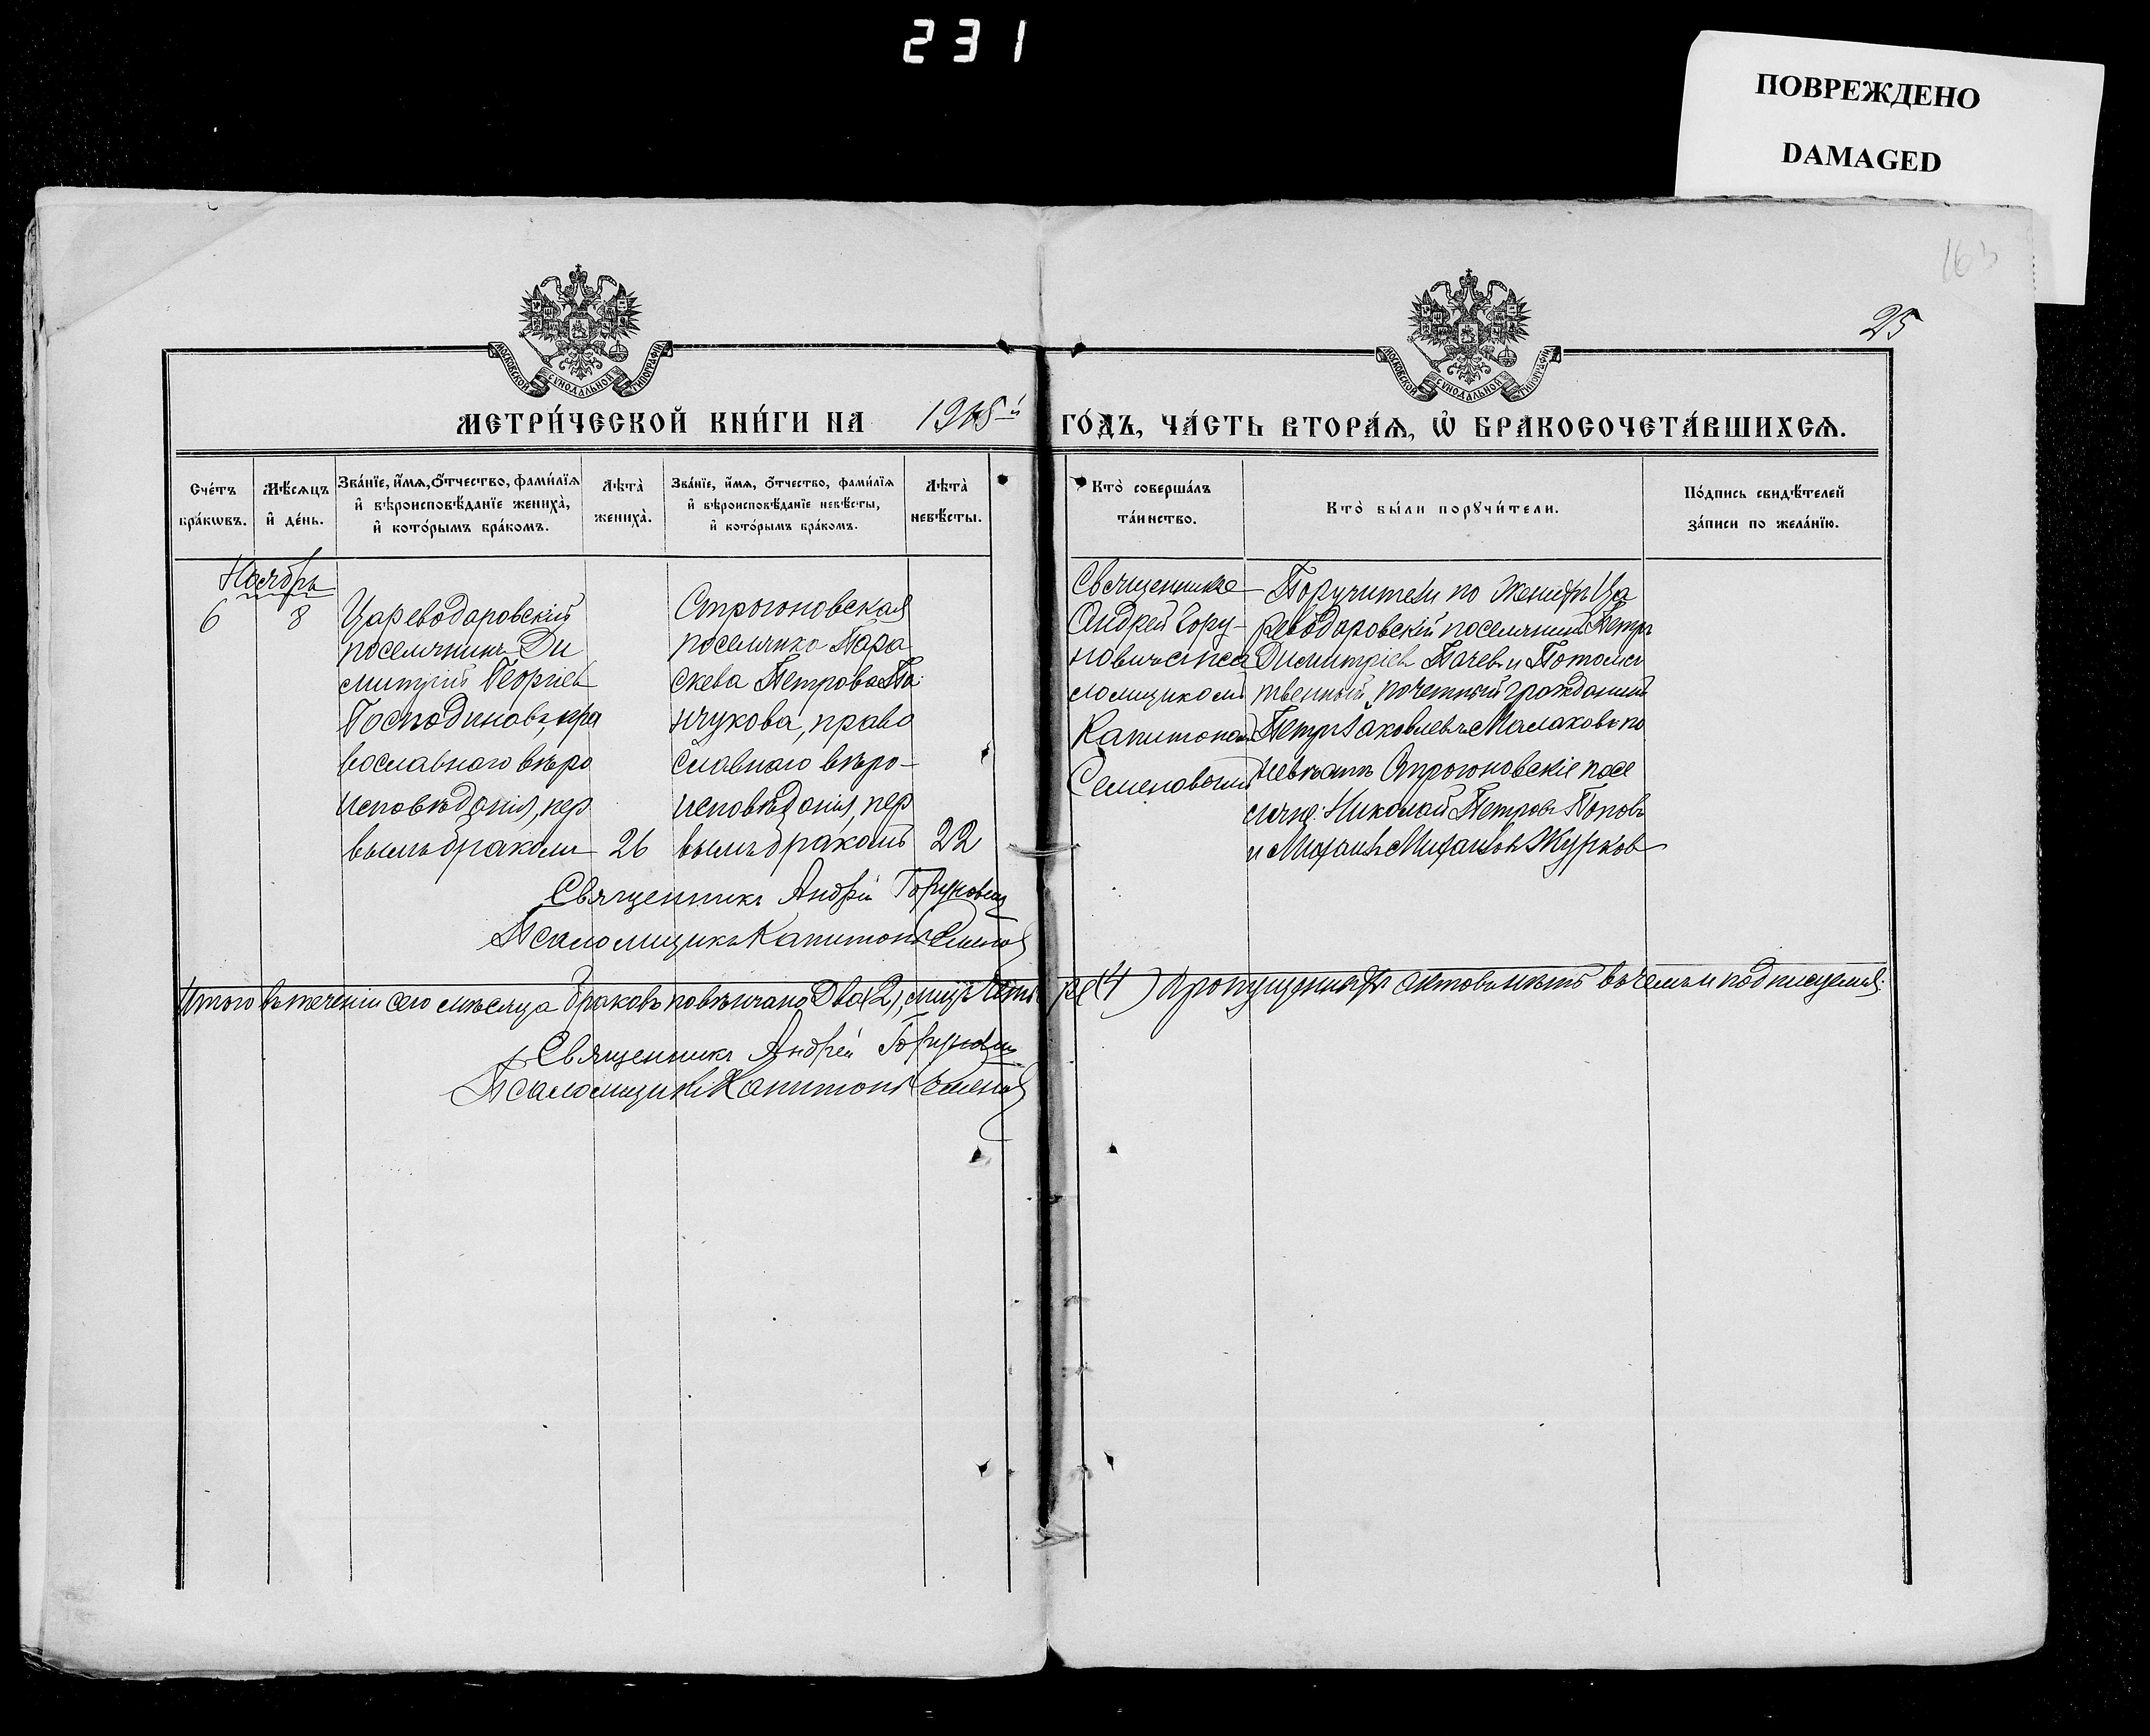 231
ПОВРЕЖДЕНО
DAMAGED
25
МОСКОВСКОЙ СУНОДАЛЬНОЙ ТИПОГРАФІИ
МОСКОВСКОЙ СУНОДАЛЬНОЙ ТИПОГРАФІИ
МЕТРИ́ЧЕСКОЙ КНИ́ГИ НА 1908й ГО́ДЪ, ЧА́СТЬ ВТОРА́Ѧ, Ѡ҆ БРАКОСОЧЕТА́ВШИХСѦ.
Сче́тъ
бра́кѡвъ.
Мѣ́сѧцъ
и҆ де́нь.
Зва́нїе, и҆́мѧ, ѻ҆́тчество, фами́лїѧ
и҆ вѣроисповѣ́данїе жениха̀,
и҆ кото́рымъ бра́комъ.
Лѣта̀
жениха̀.
Зва́нїе, и҆́мѧ, ѻ҆́тчество, фами́лїѧ
и҆ вѣроисповѣ́данїе невѣ́сты,
и҆ кото́рымъ бра́комъ.
Лѣта̀
невѣ́сты.
Кто̀ соверша́лъ
та́инство.
Кто̀ бы́ли порꙋчи́тели.
По́дпись свидѣ́телей
за́писи по жела́нїю.
Ноябрь
6
8
Царeводаровскій
поселянинъ Ди
митрій Георгіев
Господиновъ, пра
вославнаго вѣро
исповѣданія, пер
вымъ бракомъ
26
Строгоновская
поселянка Пара
скева Петрова Па
нчукова, право
славнаго вѣро-
исповѣданія, пер
вымъ бракомъ
22
Священникъ
Андрей Гору-
новичъ с пса
ломщикомъ
Капитономъ
Семеновымъ
Поручители по женихѣ Ца
реводаровскій поселянинъ Петръ
Димитріев Пачевъ и Потомст
твенный почетный гражданинъ
Петръ Іаковлевъ Малаховъ по
невѣстѣ Строгоновскіе посе
ляне: Николай Петровъ Поповъ
и Михаилъ Михаиловъ Журковъ
Священникъ Андрей Горуновичъ
Псаломщикъ Капитонъ Семеновъ
Итого въ теченіи сего мѣсяца браковъ повѣнчано два (2), лицъ четы ре (4) пропущенныхъ актовъ нѣтъ въ чемъ и подписуемся:
Священникъ Андрей Горуновичъ
Псаломщикъ Капитонъ Семеновъ